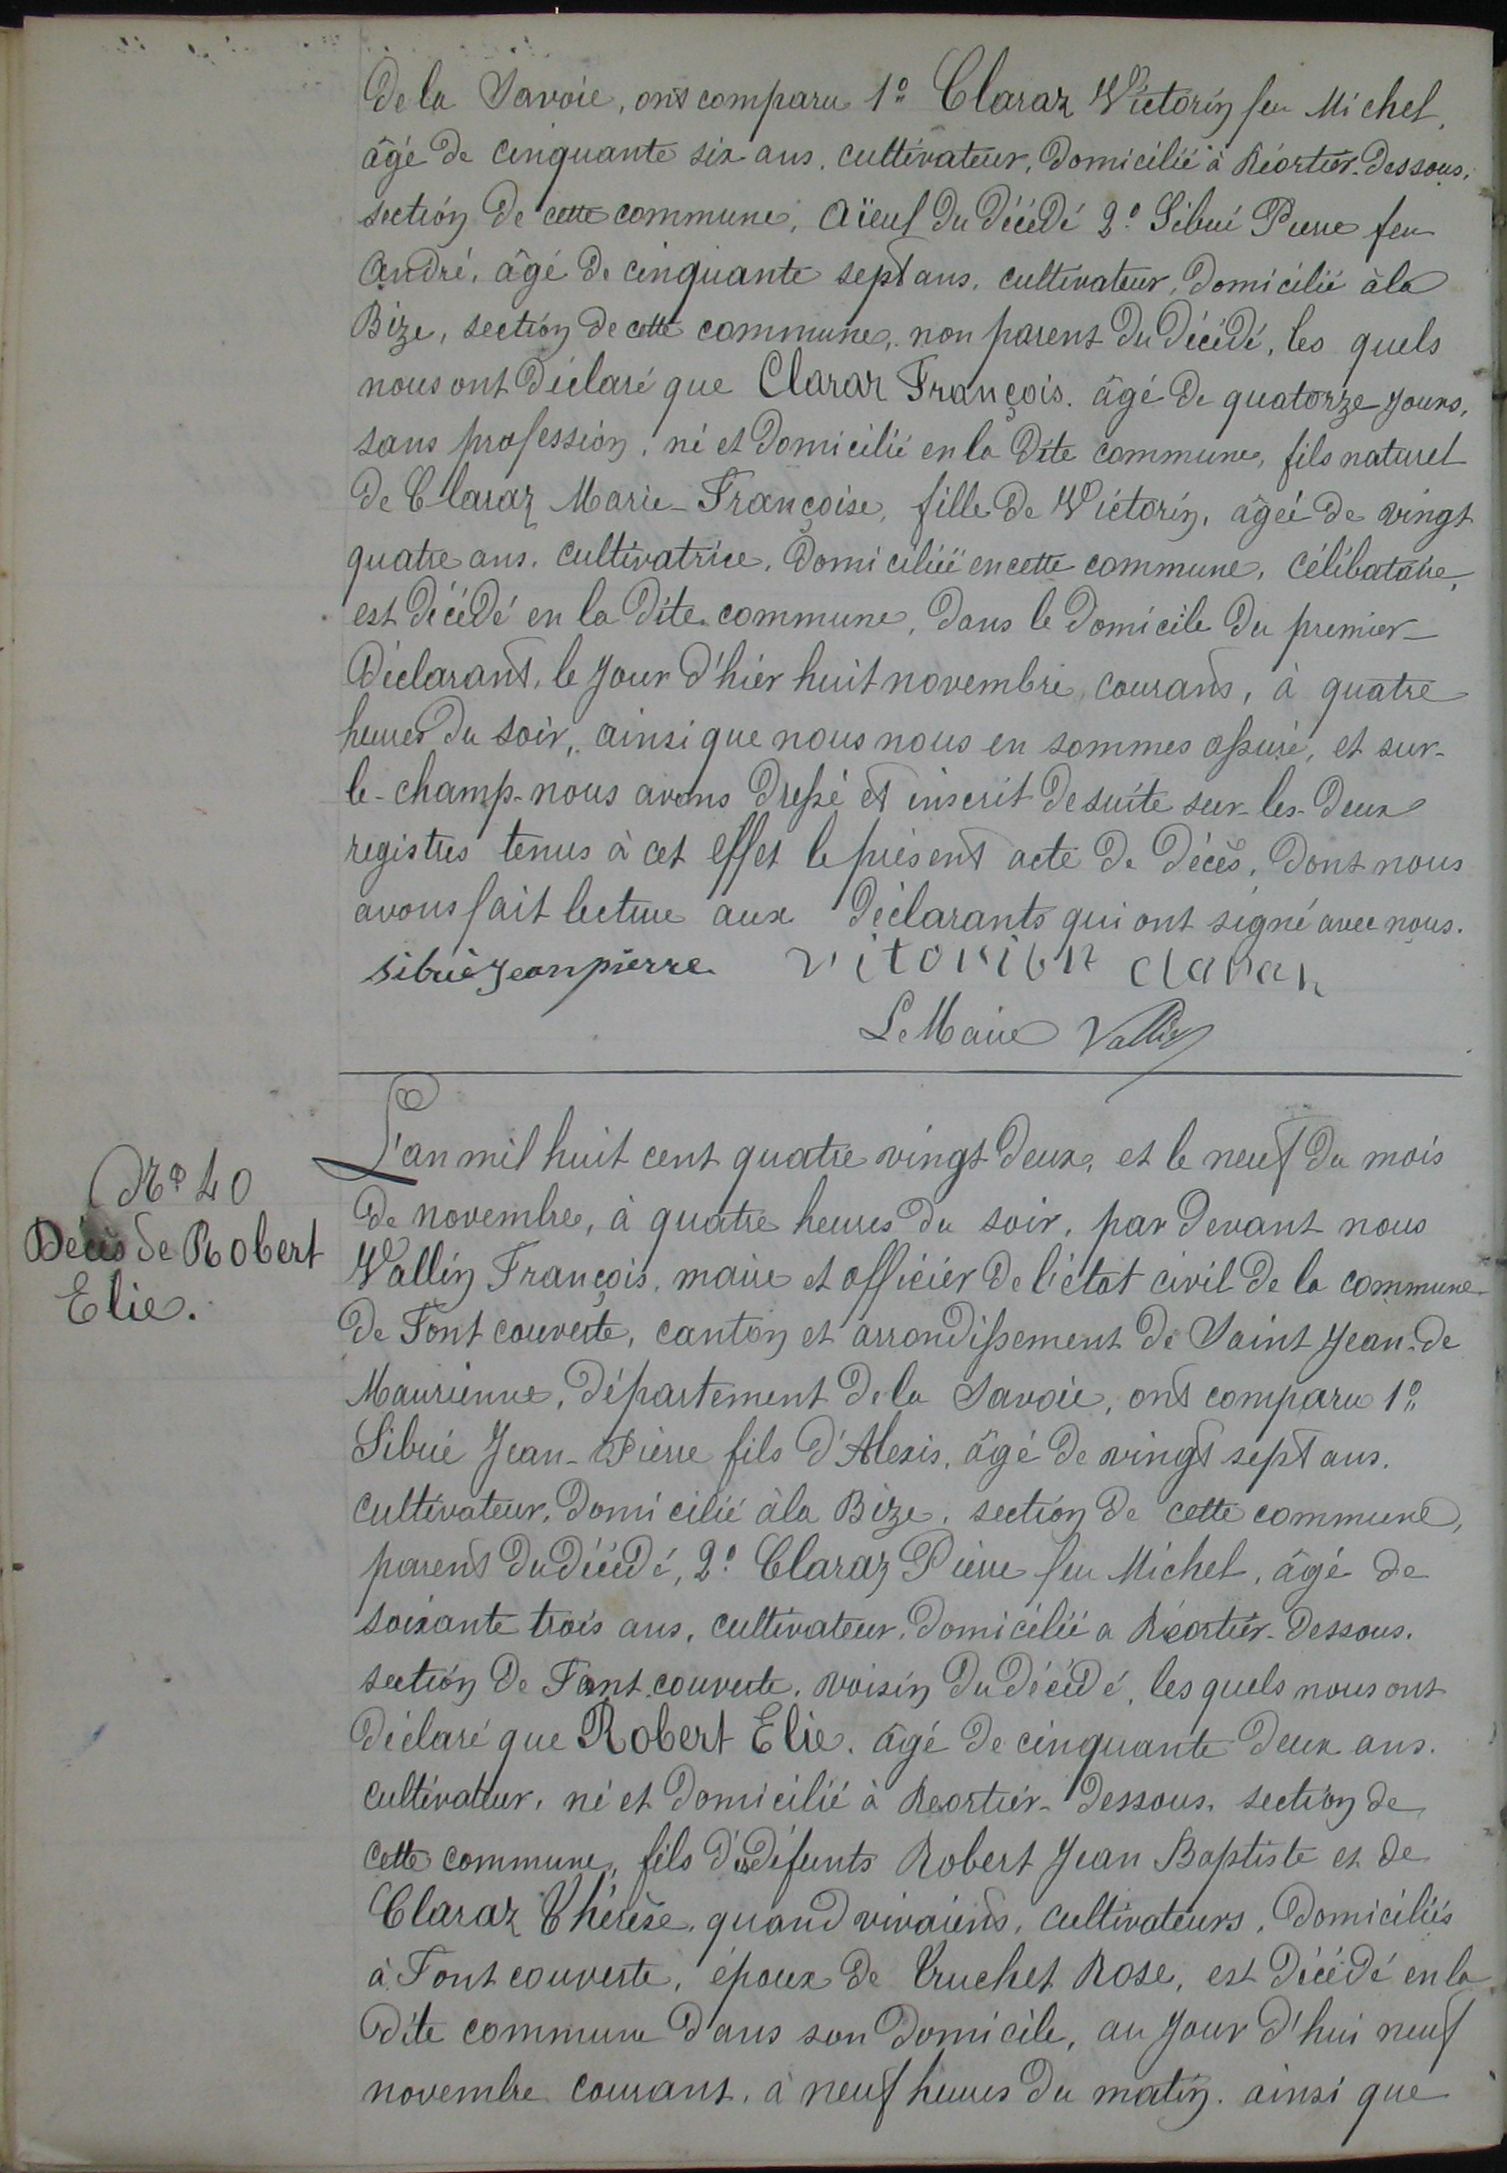 de la Savoie, ont comparu 1º Claraz Victorin feu Michel,
âgé de cinquante six ans, cultivateur, domicilié à Réortier-dessous,
section de cette commune, aïeul du décédé 2º Sibué Pierre feu
André, âgé de cinquante sept ans, cultivateur, domicilié à la
Bize, section de cette commune, non parent du décédé, les quels
nous ont déclaré que Claraz François, âgé de quatorze jours,
sans profession, né et domicilié en la dite commune, fils naturel
de Claraz Marie-Françoise, fille de Victorin, âgée de vingt
quatre ans, cultivatrice, domiciliée en cette commune, célibataire,
est décédé en la dite commune, dans le domicile du premier
déclarant, le jour d'hier huit novembre courant, à quatre
heures du soir, ainsi que nous nous en sommes assuré, et sur-
le-champ-nous avons dressé et inscrit de suite sur-les-deux
registres tenus à cet effet le présent acte de décès, dont nous
avons fait lecture aux déclarants qui ont signé avec nous.
Sibué jean pierre vitorien claraz
Le Maire Vallin
Nº 40
Décès de Robert
Elie.
L'an mil huit cent quatre vingt deux, et le neuf du mois
de novembre, à quatre heures du soir, par devant nous
Vallin François, maire et officier de l'état civil de la commune
de Fontcouverte, canton et arrondissement de Saint Jean-de
Maurienne, département de la Savoie, ont comparu 1º
Sibué Jean-Pierre fils d'Alexis, âgé de vingt sept ans,
cultivateur, domicilié à la Bize, section de cette commune,
parent du décédé, 2º Claraz Pierre feu Michel, âgé de
soixante trois ans, cultivateur, domicilié a Réortier-dessous,
section de Font couverte, voisin du décédé, les quels nous ont
déclaré que Robert Elie, âgé de cinquante deux ans,
cultivateur, né et domicilié à Reortier-dessous, section de
cette commune, fils des défunts Robert Jean Baptiste et de
Claraz Thérèse, quand vivaient, cultivateurs, domiciliés
à Font couverte, époux de Truchet Rose, est décédé en la
dite commune dans son domicile, au jour d'hui neuf
novembre courant, à neuf heures du matin, ainsi que